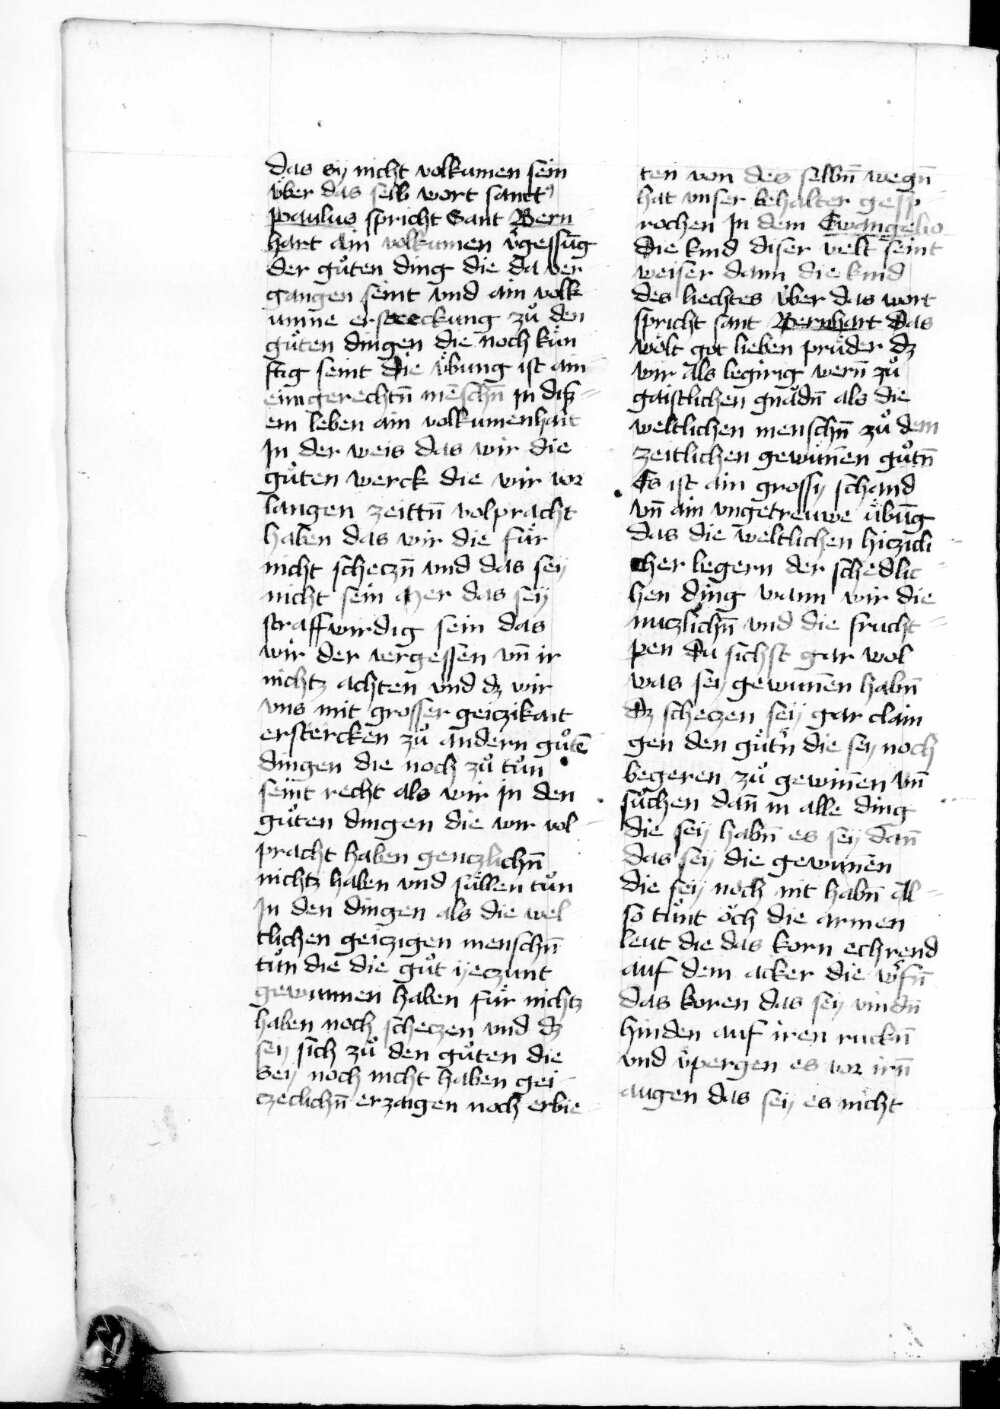 das sy nicht volkumen sein
über das selb wort sanct
paulus spricht Sant Bern
hart Ain volkumen vͦgessūg
der gůten ding die da ver
gangen seint vnd ain volk
umne ersteckung zů den
gůten dingen die noch kün
ftig seint Die v̈bung ist ain
eim gerechtn̄ menschn̄ in diß
em leben ain volkumenhait
In der weis das wir die
gůten werck die wir vor
langen zeittn̄ volpracht
haben das wir die für
nicht scheczn̄ vnd das seÿ
nicht sein Mer das seÿ
straffwirdig sein das
wir der vergessen vn̄ ir
nichtz achten vnd dz wir
vns mit grosser geiczikait
erstercken zů andern gůtē
dingen die noch zů tůn
seint recht als wir in den
gůten dingen die wir vol
pracht haben genczlichn̄
nichtz haben vnd süllen tůn
In den dingen als die wel
tlichen geiczigen menschn̄
tůn die die gůt yeczunt
gewunnen haben für nichtz
haben noch sheczen vnd dz
seÿ sich zů den gůten die
Seÿ noch nicht haben gei
czeclichn̄ erzaigen noch erbie
ten von des selbn̄ wegn̄
hat vnser behalter gesp
rochen In dem Ewangelio
Die kind diser welt seint
weiser dann die kind
des liechtes über das wort
spricht sant Bernhart Das
wölt got lieben prüder dz
wir als begirig wern̄ zů
gaistlichen gnadn̄ als die
weltlichen menschn̄ zů dem
zeitlichen gewin̄en gůtn̄
Es ist ain grossÿ schand
vn̄ ain vngetreuwe übūg
das die weltlichen hiczicli
cher begern der schedlic
hen ding wann wir die
nuczlichn̄ vnd die frucht
pen Du sichst gar wol
was seÿ gewunnen habn̄
Dz scheczen seÿ gar clain
gen den gůtn̄ die seÿ noch
begeren zů gewin̄en vnn̄
sůchen dan̄ in alle ding
die seÿ habn̄ es seÿ dan̄
das seÿ die gewin̄en
die seÿ noch nit habn̄ Al
so tůnt öch die armen
leut die das korn echrend
auf dem acker die w̓fn̄
das koren das seÿ vindn̄
hinden auf iren ruckn̄
vnd v̓pergen es vor irn̄
augen das seÿ es nicht